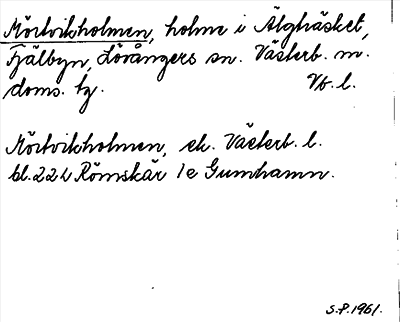 Mörtvikholmen, holme i Älgträsket,
Fjälbyn, Lövångers sn. Västerb. m.
doms. tg. Vb. l.
Mörtvikholmen, ek. Västerb. l.
bl. 22 L Römskär 1e Gumhamn.
S.P. 1961.